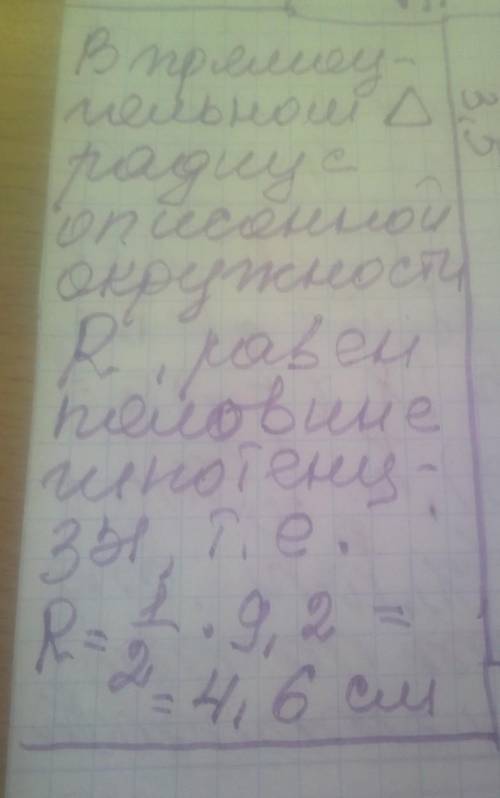 В прямоуг-
гольном Δ
радиус
описанной
окружности
R, равен
половине
гипотену-
зы, т.е.
R = 1/2 · 9,2 =
= 4,6 см
3,5